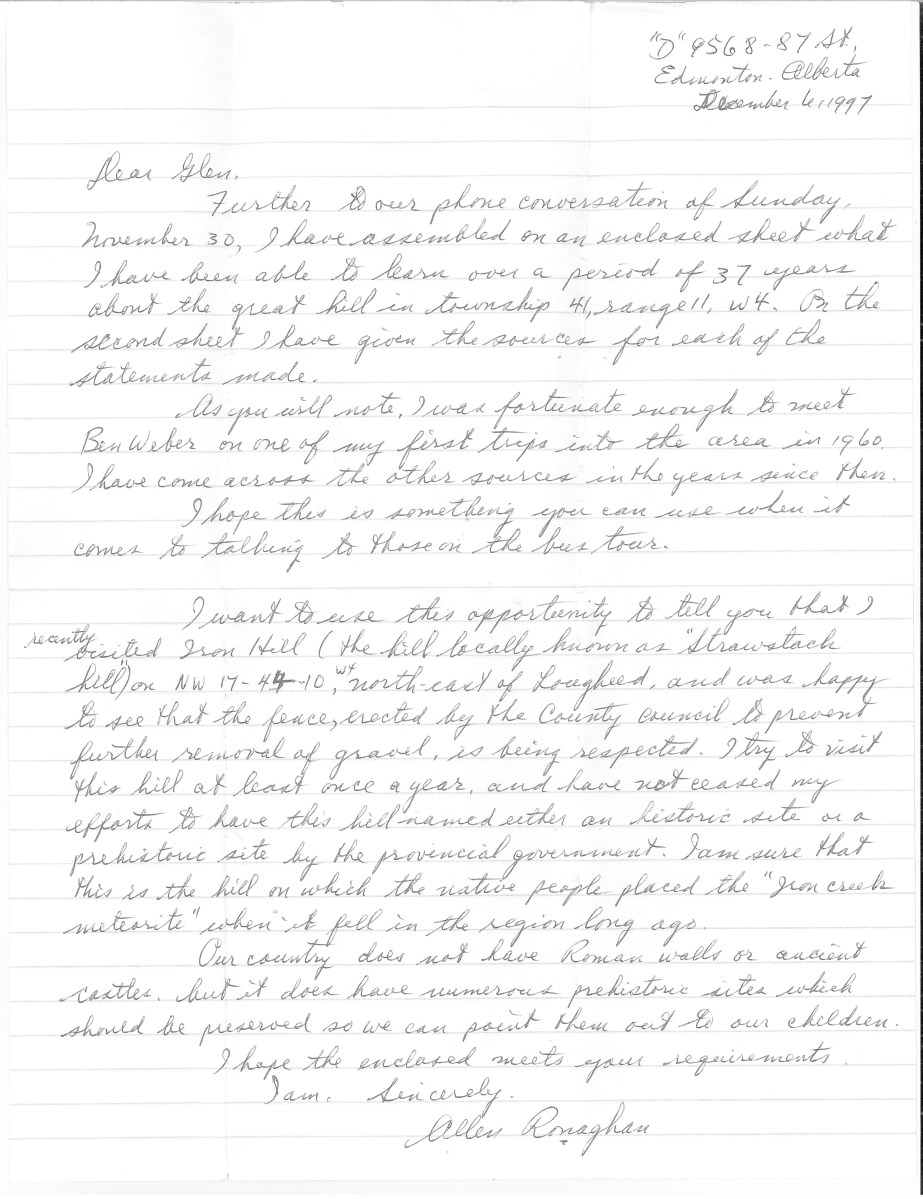 "D" 9568-87 St.,
Edmonton. Alberta
December 6, 1997
Dear Glen.
Further to our phone conversation of Sunday,
November 30, I have assembled on an enclosed sheet what
I have been able to learn over a period of 37 years
about the great hill in township 41, range 11, W4. On the
second sheet I have given the sources for each of the
statements made.
As you will note, I was fortunate enough to meet
Ben Weber on one of my first trips into the area in 1960.
I have come across the other sources in the years since then.
I hope this is something you can use when it
comes to talking to those on the bus tour.
I want to use this opportunity to tell you that I
recently visited Iron Hill (the hill locally known as "Strawstack
hill") on NW 17-44-10, W4 north-east of Lougheed, and was happy
to see that the fence, erected by the County council to prevent
further removal of gravel, is being respected. I try to visit
this hill at least once a year, and have not ceased my
efforts to have this hill named either an historic site or a
prehistoric site by the provincial government. I am sure that
this is the hill on which the native people placed the "Iron creek
meteorite" when it fell in the region long ago.
Our country does not have Roman walls or ancient
castles, but it does have numerous prehistoric sites which
should be preserved so we can point them out to our children.
I hope the enclosed meets your requirements.
I am. Sincerely.
Allen Ronaghan